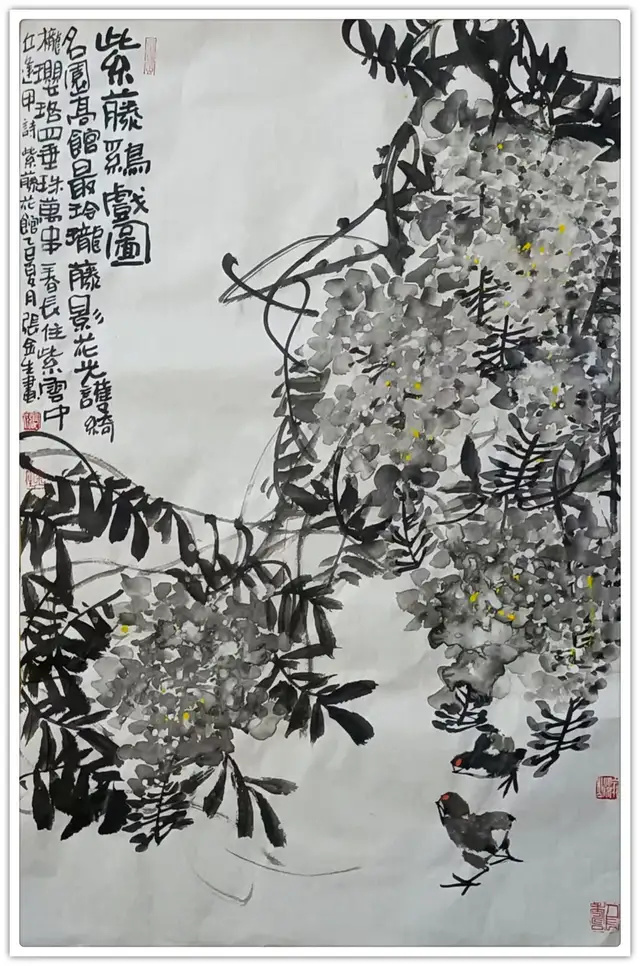 紫藤鷄戲圖
名園髙館最玲瓏藤影花光護綺
櫳瓔珞四垂珠萬串春長住紫雲中
丘逢甲詩紫藤花館乙巳夏月張金生畫